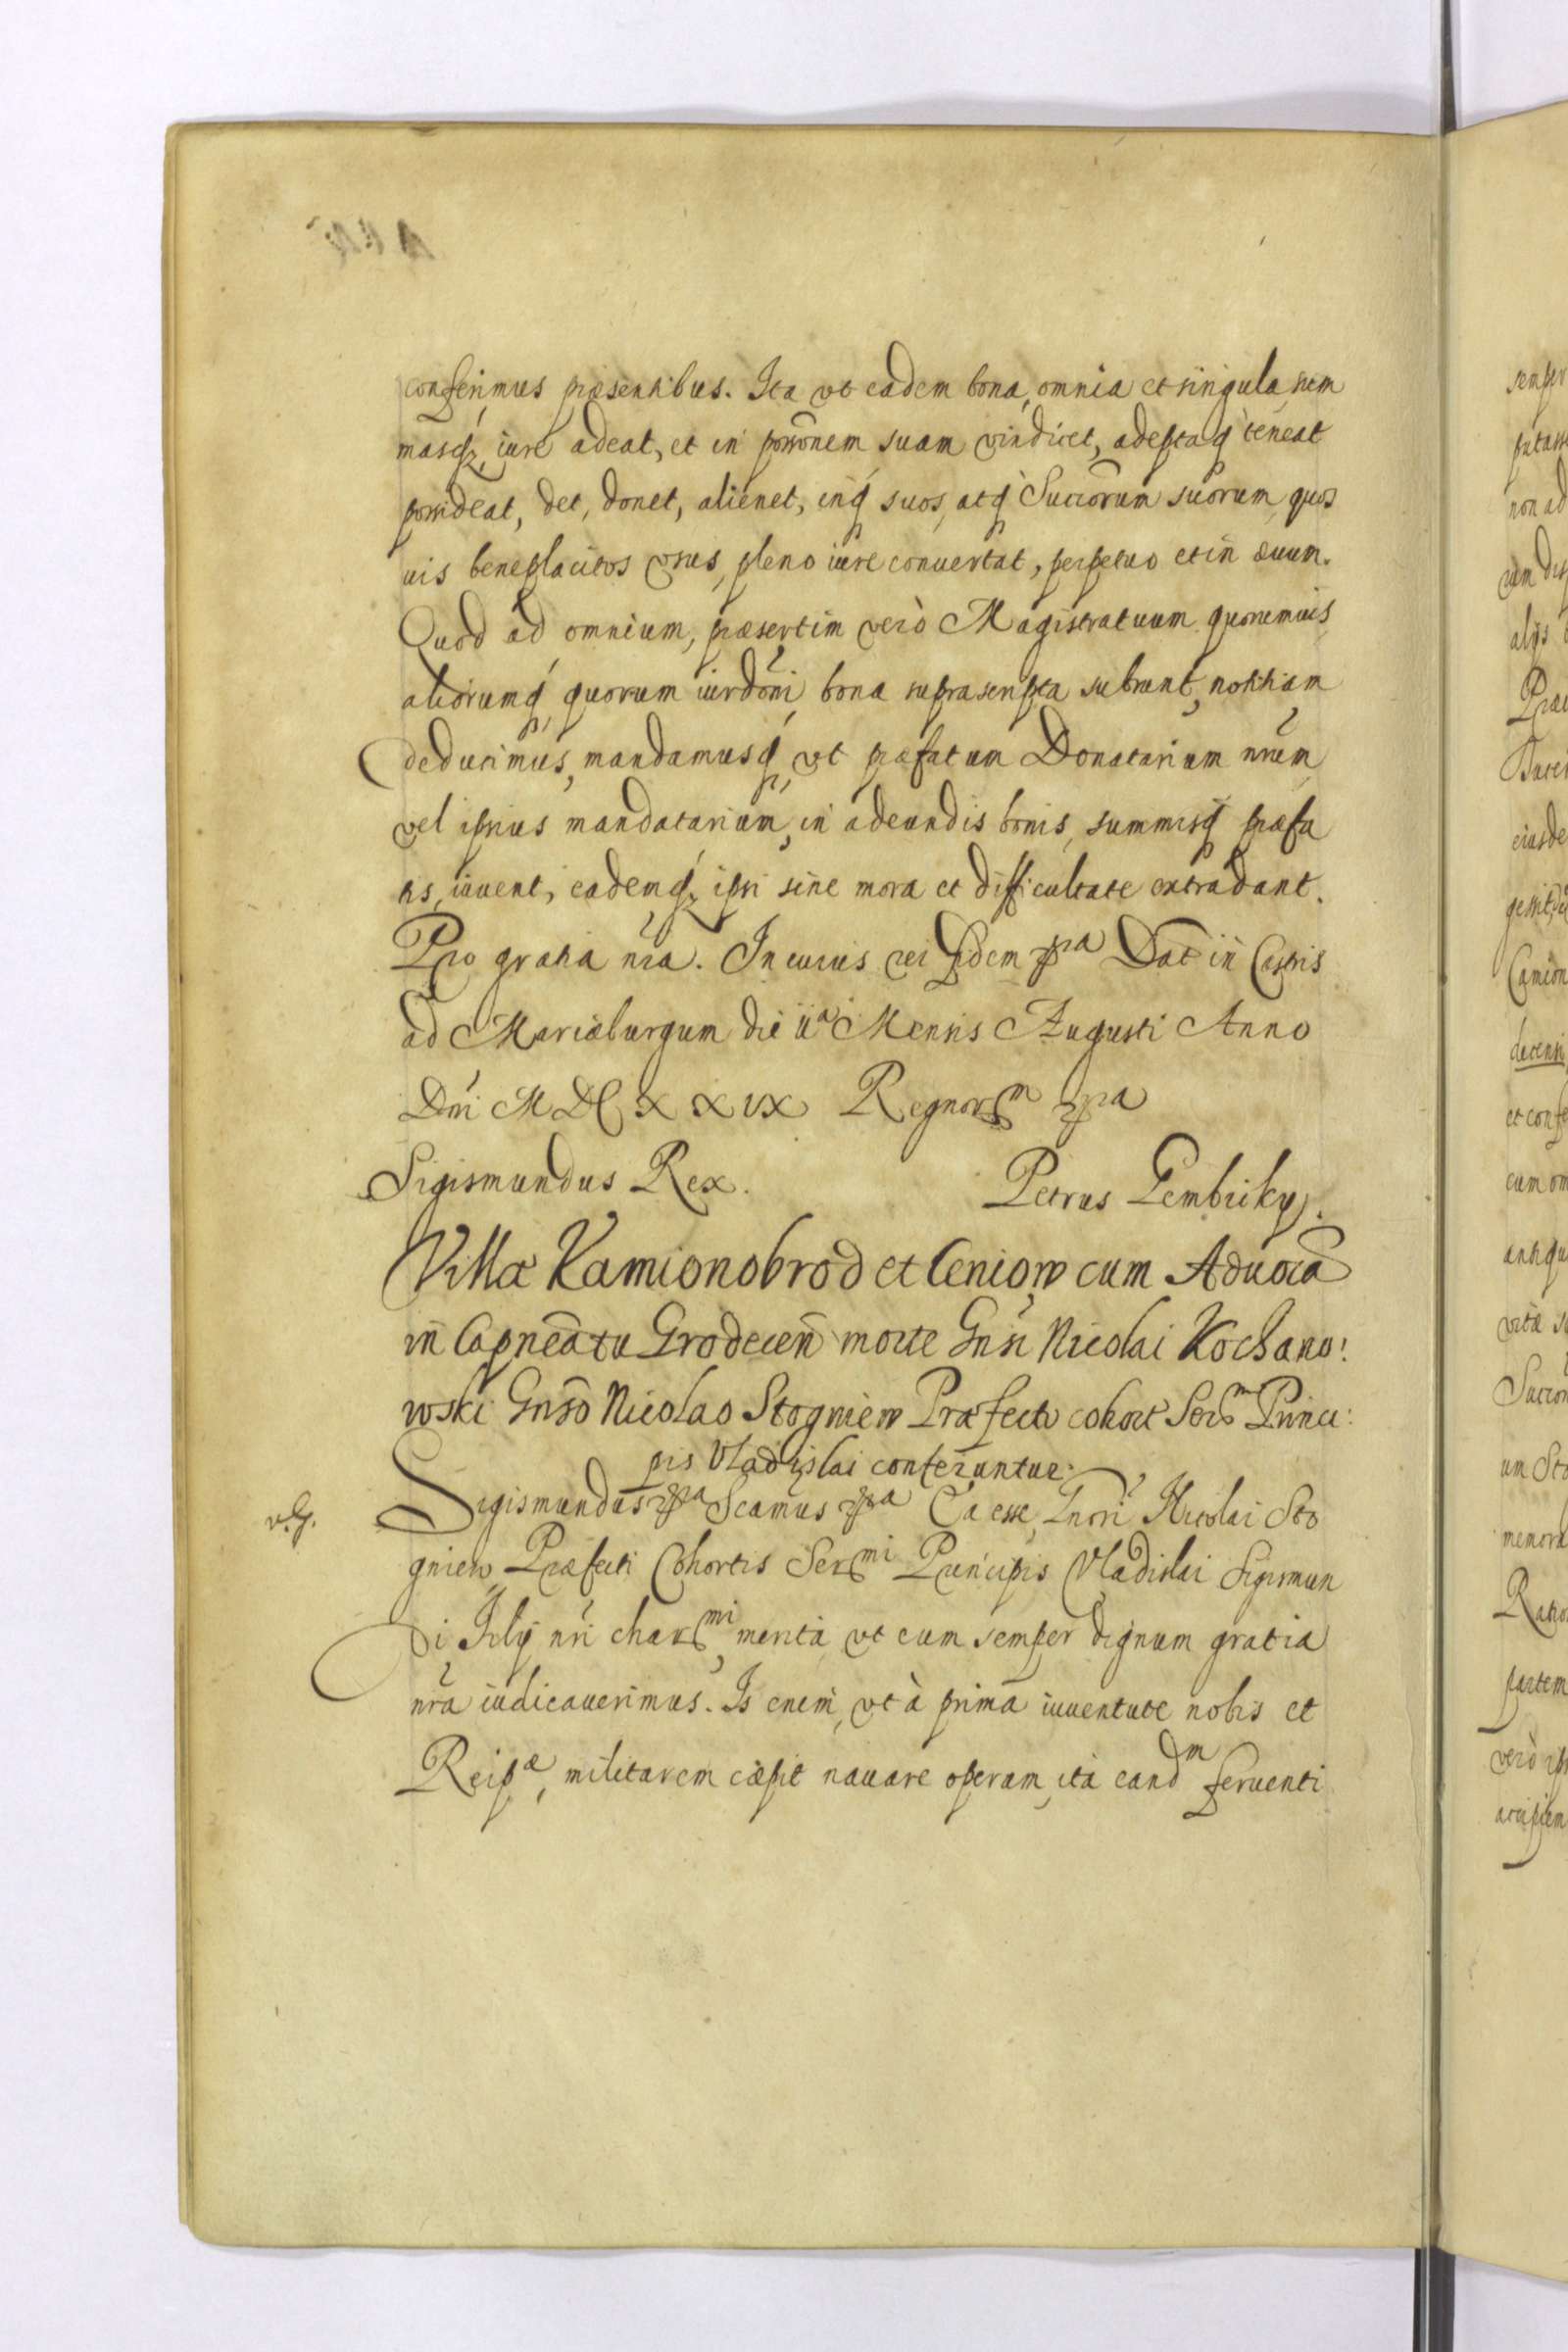 conferimus præsentibus. Ita vt eadem bona, omnia et singula, sum
masq́, iure adeat, et in possõnem suam vindicet, adeptaq́ teneat
possideat, det, donet, alienet, inq́ suos, atq́ Succorũm suorum, quos
uis beneplacitos vsus, pleno iure conuertat, perpetuo et in æuum.
Quod ad omnium, præsertim verò Magistratuum quorumuis,
aliorumq́ quorum iurdõni bona suprascripta subsunt, notitiam
deducimus, mandamusq́, vt præfatum Donatarium nrũm,
vel ipsius mandatarium, in adeundis bonis, summisq́ præfa
tis, iuuent, eademq́ ipsi sine mora et difficultate extradant.
Pro gratia nrã. In cuius rei fidem ꝑrã Dat in Castris
ad Mariæburgum die iiª Mensis Augusti Anno
Dni M DC X X IX Regnorm ꝑrã
Sigismundus Rex. Petrus Gembicky.
Villæ Kamionobrod et Ceniow cum Aduocã
in Capneãtu Grodecen̄ morte Gnsi Nicolai Kochano:
wski Gnso Nicolao Stogniew Præfecto cohort Serm Princi:
pis Vladislai conferuntur.
Sigismundus ꝑrã Scamus ꝑrã Ea esse, Gnori Nicolai Sto
v. G.
gniew Præfecti Cohortis Sermi Principis Vladislai Sigismun
di Filij nri charmi, merita, vt eum semper dignum gratia
nrã iudicauerimus. Is enim, vt à prima iuuentute nobis et
Reipæ, militarem cæpit nauare operam, ita eandm feruenti